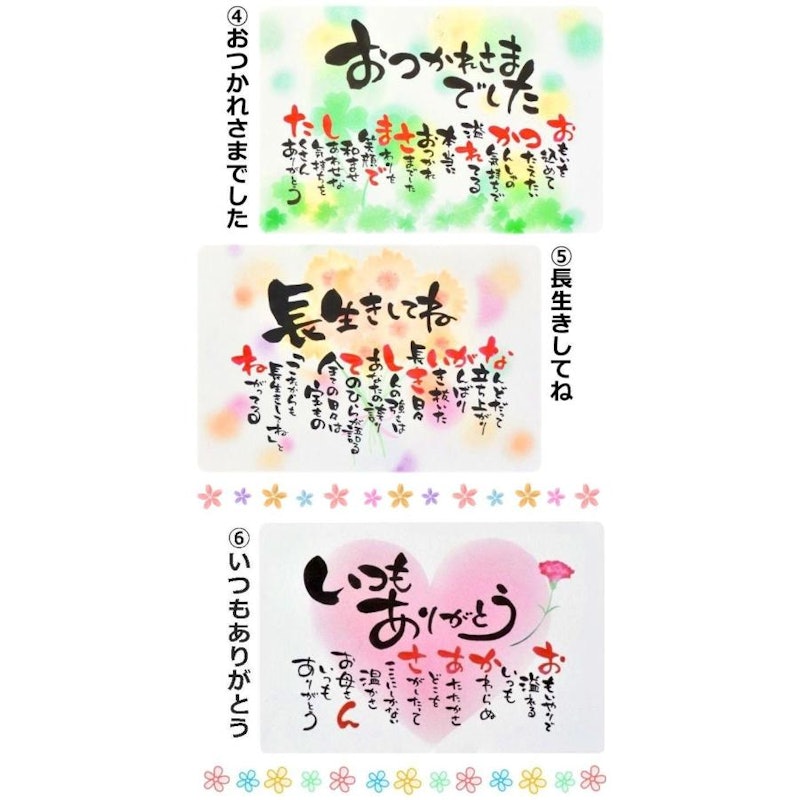 ④おつかれさまでした
おつかれさま
でした
おもいを
込めて
つたえたい
かんしゃの
気持ちで
溢れてる
本当に
おつかれ
さまでした
まわりを
笑顔で
和ませ
しあわせな
気持ちを
たくさん
ありがとう
⑤長生きしてね
長生きしてね
なんどだって
立ち上がり
がんばり
いき抜いた
長き日々
しんの強さは
あなたの誇り
てのひらが語る
全ての日々は
宝もの
「これからも
長生きしてね」と
ねがってる
⑥いつもありがとう
いつも
ありがとう
おもいやりで
溢れる
いつも
かわらぬ
あたたかさ
どこを
さがしたって
ここにしかない
温かさ
お母さん
いつも
ありがとう